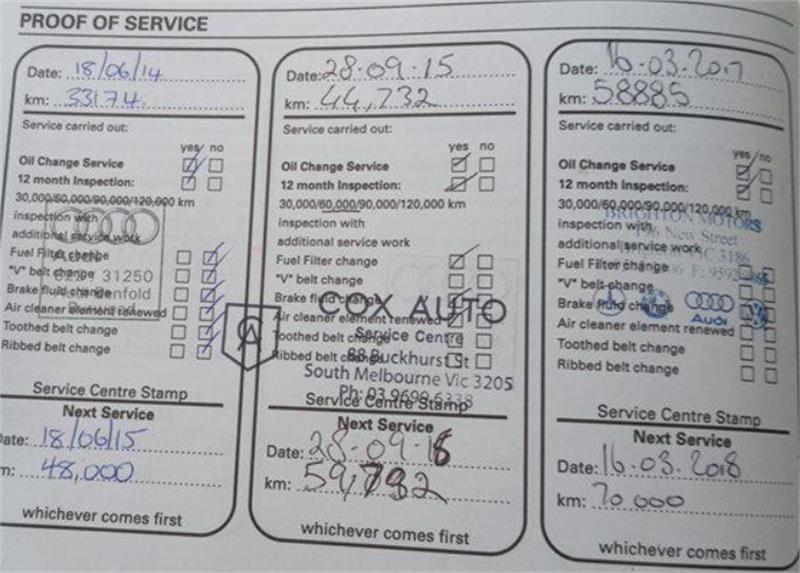 PROOF OF SERVICE
Date: 18/06/14
km: 33174
Service carried out:
yes no
Oil Change Service
12 month Inspection:
30,000/60,000/90,000/120,000 km
inspection with
additional service work
Fuel Filter change
"V" belt change
31250
Brake fluid change
Air cleaner element renewed
Toothed belt change
Ribbed belt change
Service Centre Stamp
Next Service
Date: 18/06/15
km: 48,000
whichever comes first
Date: 28-09-15
km: 44,732
Service carried out:
yes no
Oil Change Service
12 month Inspection:
30,000/60,000/90,000/120,000 km
inspection with
additional service work
Fuel Filter change
"V" belt change
Brake fluid change
COX AUTO
Air cleaner element renewed
Service Centre
Toothed belt change
88 Buckhurst St
Ribbed belt change
South Melbourne Vic 3205
Ph: 03 9699 6338
Service Centre Stamp
Next Service
Date: 28-09-16
km: 59,732
whichever comes first
Date: 16-03-2017
km: 58885
Service carried out:
yes no
Oil Change Service
12 month Inspection:
30,000/60,000/90,000/120,000 km
BRIGHTON MOTORS
inspection with
New Street
additional service work
VIC 3186
Fuel Filter change
"V" belt change
Brake fluid change
Audi
Air cleaner element renewed
Toothed belt change
Ribbed belt change
Service Centre Stamp
Next Service
Date: 16.03.2018
km: 70 000
whichever comes first